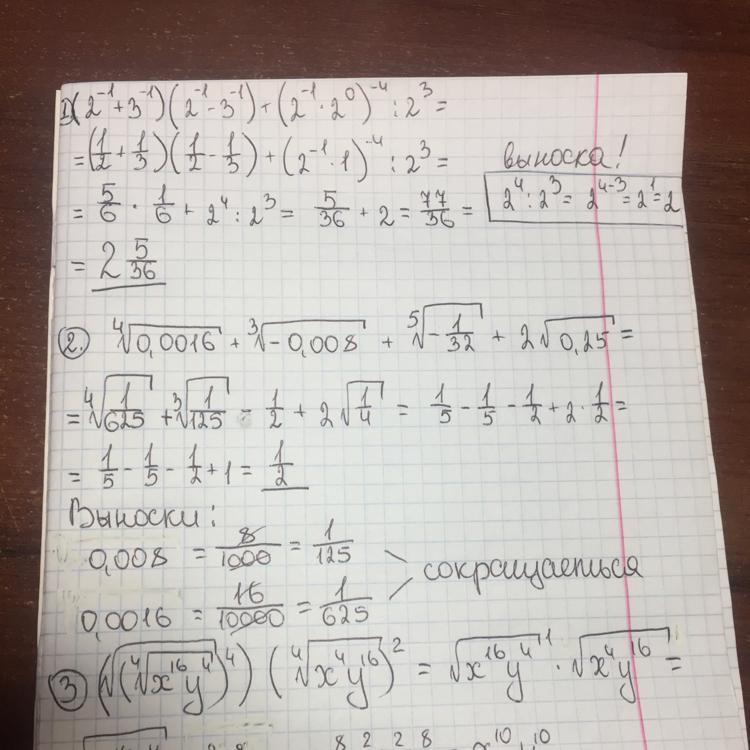 1) (2⁻¹ + 3⁻¹)(2⁻¹ - 3⁻¹) + (2⁻¹ · 2⁰)⁻⁴ : 2³ =
= (1/2 + 1/3)(1/2 - 1/3) + (2⁻¹ · 1)⁻⁴ : 2³ =
выноска!
= 5/6 · 1/6 + 2⁴ : 2³ = 5/36 + 2 = 77/36 =
2⁴ : 2³ = 2⁴⁻³ = 2¹ = 2
= 2 5/36
2. ⁴√0,0016 + ³√-0,008 + ⁵√-1/32 + 2√0,25 =
= ⁴√1/625 + ³√1/125 - 1/2 + 2√1/4 = 1/5 - 1/5 - 1/2 + 2 · 1/2 =
= 1/5 - 1/5 - 1/2 + 1 = 1/2
Выноски:
0,008 = 8/1000 = 1/125
сокращаеться
0,0016 = 16/10000 = 1/625
3 (√(⁴√x¹⁶y⁴)⁴) (⁴√x⁴y¹⁶)² = √x¹⁶y⁴ · √x⁴y¹⁶ =